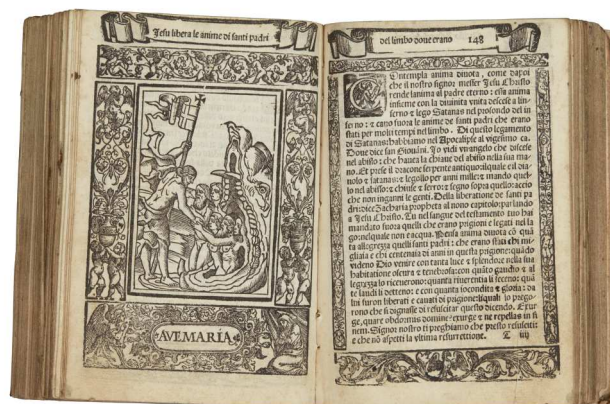 Jesu libera le anime di santi padri
AVE MARIA
del limbo dove erano 148
COntempla anima divota, come dapoi
che il nostro signor messer Jesu Christo
rende lanima al padre eterno: essa anima
insieme con la divinita unita descese a lin-
ferno ⁊ lego Satanas nel profondo del in
ferno: ⁊ cavo fuora le anime de santi padri che erano
stati per molti tempi nel limbo. Di questo legamento
di Satanas habbiamo nel Apocalipse al vigesimo ca.
Dove dice san Giovāni. Jo vidi vrangelo che discese
nel abisso: che haueva la chiaue del abisso nella sua ma-
no. Et prese il dracone serpente antiquo: il quale e il dia-
uolo ⁊ satanas: ⁊ legollo per anni mille: ⁊ mando quel-
lo nel abisso: ⁊ chiuse ⁊ serro: ⁊ segno sopra quello: accio
che non inganni le genti. Della liberatione de santi pa
dri: dice Zacharia propheta al nono capitolo: parlando
a Jesu Christo. Tu nel sangue del testamento tuo hai
mandato fuora quelli che erano prigione ⁊ legati nel la
go: nel quale non e acqua. Pensa anima divota cō quā
ta allegrezza quelli santi padri: che erano stati chi mi-
gliaia e chi centenaia di anni in questa prigione: quādo
videno Dio venire con tanta luce ⁊ splendore nella sua
habitatione oscura ⁊ tenebrosa: con quāto gaudio ⁊ al
legrezza lo riceuerono: quanta riuerentia li feceno: quā
te laudi li detteno: e con quanta iocondita ⁊ gloria: da
lui furon liberati e cauati di prigione: liquali lo prego-
rono che si dignasse di resuscitar questo dicendo. Exur
ge, quare obdormis domine: exurge ⁊ ne repellas in fi
nem. Signor nostro ti preghiamo che presto resusciti:
e che nō aspetti la vltima resurrettione. T iiij